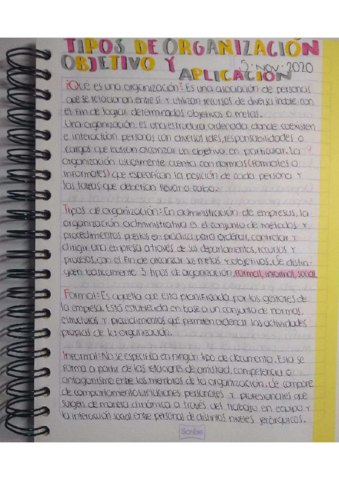 TIPOS DE ORGANIZACIÓN
OBJETIVO Y APLICACIÓN
5-NOV-2020
¿Qué es una organización? Es una asociación de personas
que se relacionan entre sí y utilizan recursos de diversa índole con
el fin de lograr determinados objetivos o metas.
Una organización es una estructura ordenada donde coexisten
e interactúan personas con diversos roles, responsabilidades o
cargos que buscan alcanzar un objetivo en particular. La
organización usualmente cuenta con normas (formales o
informales) que especifican la posición de cada persona y
las tareas que debería llevar a cabo.
Tipos de organización: En administración de empresas, la
organización administrativa es el conjunto de métodos y
procedimientos puestos en práctica para ordenar, controlar y
dirigir una empresa a través de sus departamentos, recursos y
procesos, con el fin de organizar sus metas y objetivos. Se distin-
guen básicamente 3 tipos de organización: formal, informal, social.
Formal: Es aquella que está planificada por los gestores de
la empresa. Está establecida en base a un conjunto de normas,
estructuras y procedimientos que permiten ordenar las actividades
propias de la organización.
Informal: No se especifica en ningún tipo de documento. Esta se
forma a partir de las relaciones de amistad, competencia o
antagonismo entre los miembros de la organización, se compone
de comportamientos, relaciones personales y profesionales que
surgen de manera dinámica a través del trabajo en equipo y
la interacción social entre personas de distintos niveles jerárquicos.
Scribe